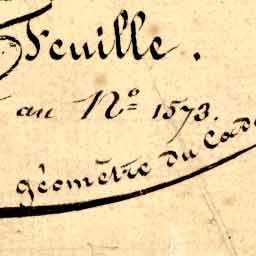 Feuille.
au Nº 1573.
géomètre du Cad